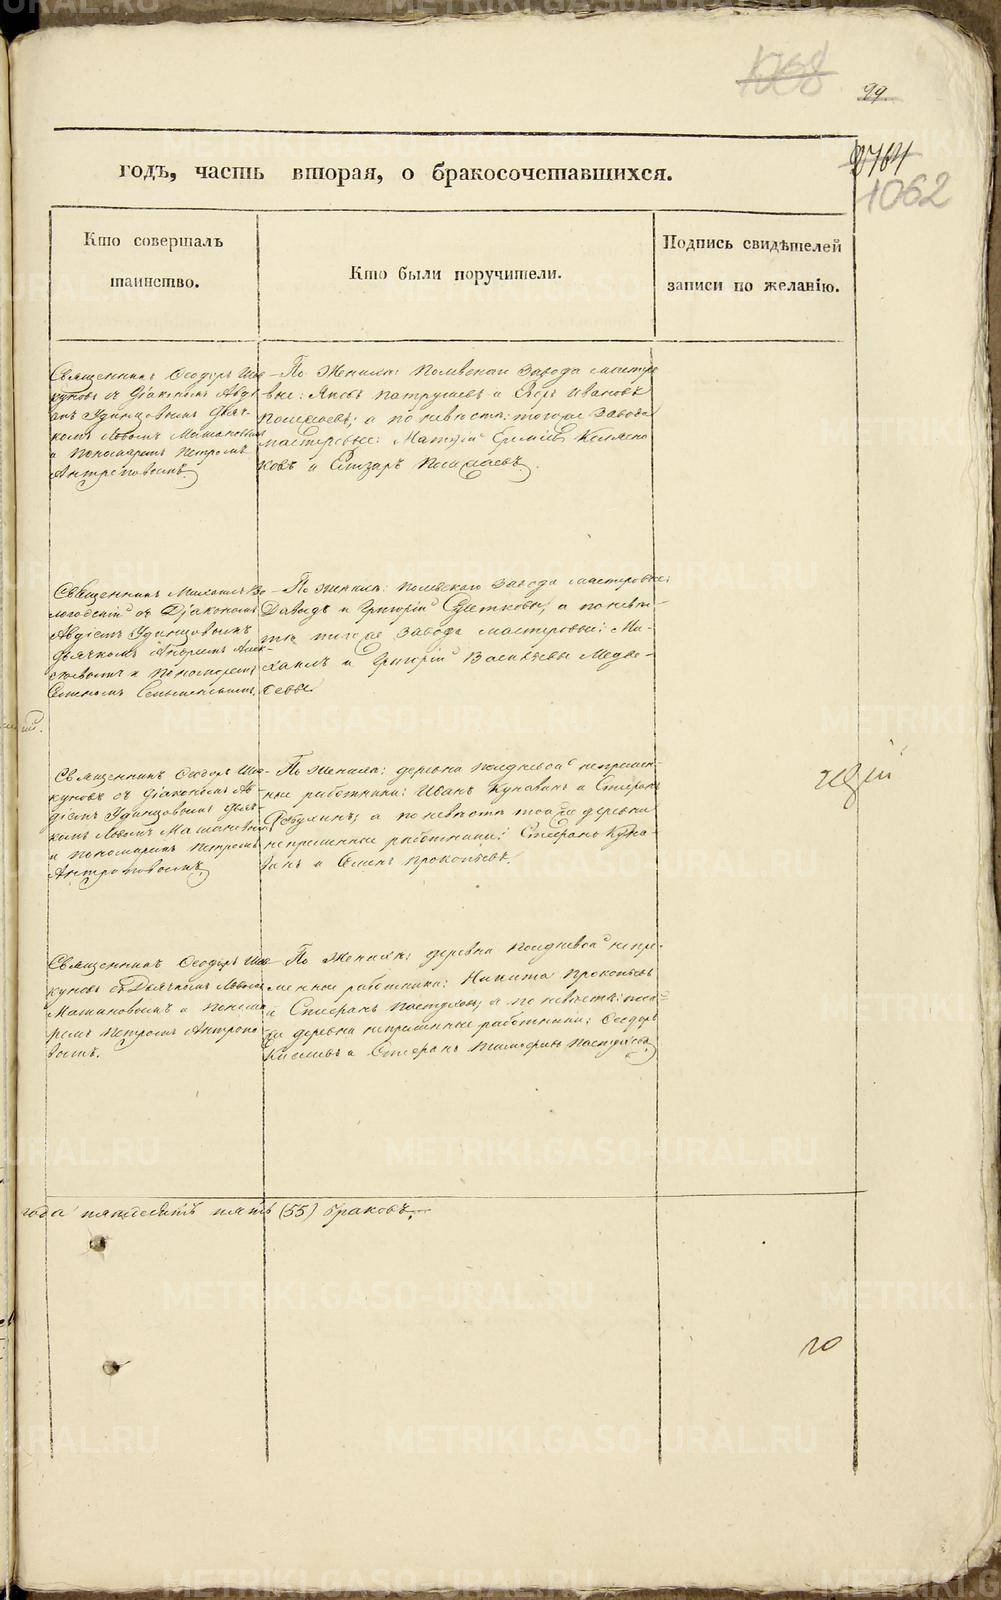 1068
99
2764
1062
годъ, часть вторая, о бракосочетавшихся.
Кто совершалъ
таинство.
Кто были поручители.
Подпись свидѣтелей
записи по желанію.
Священникъ Ѳеодоръ Ше-
куновъ съ Діакономъ Авді-
емъ Удинцовымъ Дьяч-
комъ Львомъ Мамановымъ
и Пономаремъ Петромъ
Антроповымъ.
По Женихѣ: Полевскаго Завода мастеро-
вые: Яковъ Патрушевъ и Ивановъ
а по невѣстѣ: тогоже Завода
мастеровые:
ковъ и
Священникъ Михаилъ Во-
логодскій съ Діакономъ
Авдіемъ Удинцовымъ
дьячкомъ Андреемъ Алек-
сѣевымъ и Пономаремъ
По Женихѣ: Полевскаго Завода мастеровые:
Давыдъ и Григорій а по невѣс-
тѣ тогоже Завода мастеровые: Ми-
хаилъ и Григорій Васильевы Медвѣ-
девы.
Священникъ Ѳеодоръ Ше-
куновъ съ Діакономъ Ав-
діемъ Удинцовымъ Дьяч-
комъ Львомъ Мамановымъ
и Пономаремъ Петромъ
Антроповымъ.
По Женихѣ: деревни Полдневой непремѣн-
ные работники: Иванъ Кунавинъ и Стефанъ
а по невѣстѣ тоеже деревни
непремѣнные работники: Стефанъ Куна-
винъ и Семенъ Прокопьевъ.
Священникъ Ѳеодоръ Ше-
куновъ съ Дьячкомъ Львомъ
Мамановымъ и Понома-
ремъ Петромъ Антропо-
вымъ.
По Женихѣ: деревни Полдневой непре-
мѣнные работники: Никита Прокопьевъ
и Стефанъ Пастуховъ, а по невѣстѣ: тоя-
же деревни непремѣнные работники: Ѳеодоръ
Киселевъ и Стефанъ Тимофѣевъ Пастуховъ.
года пятьдесятъ пять (55) браковъ.